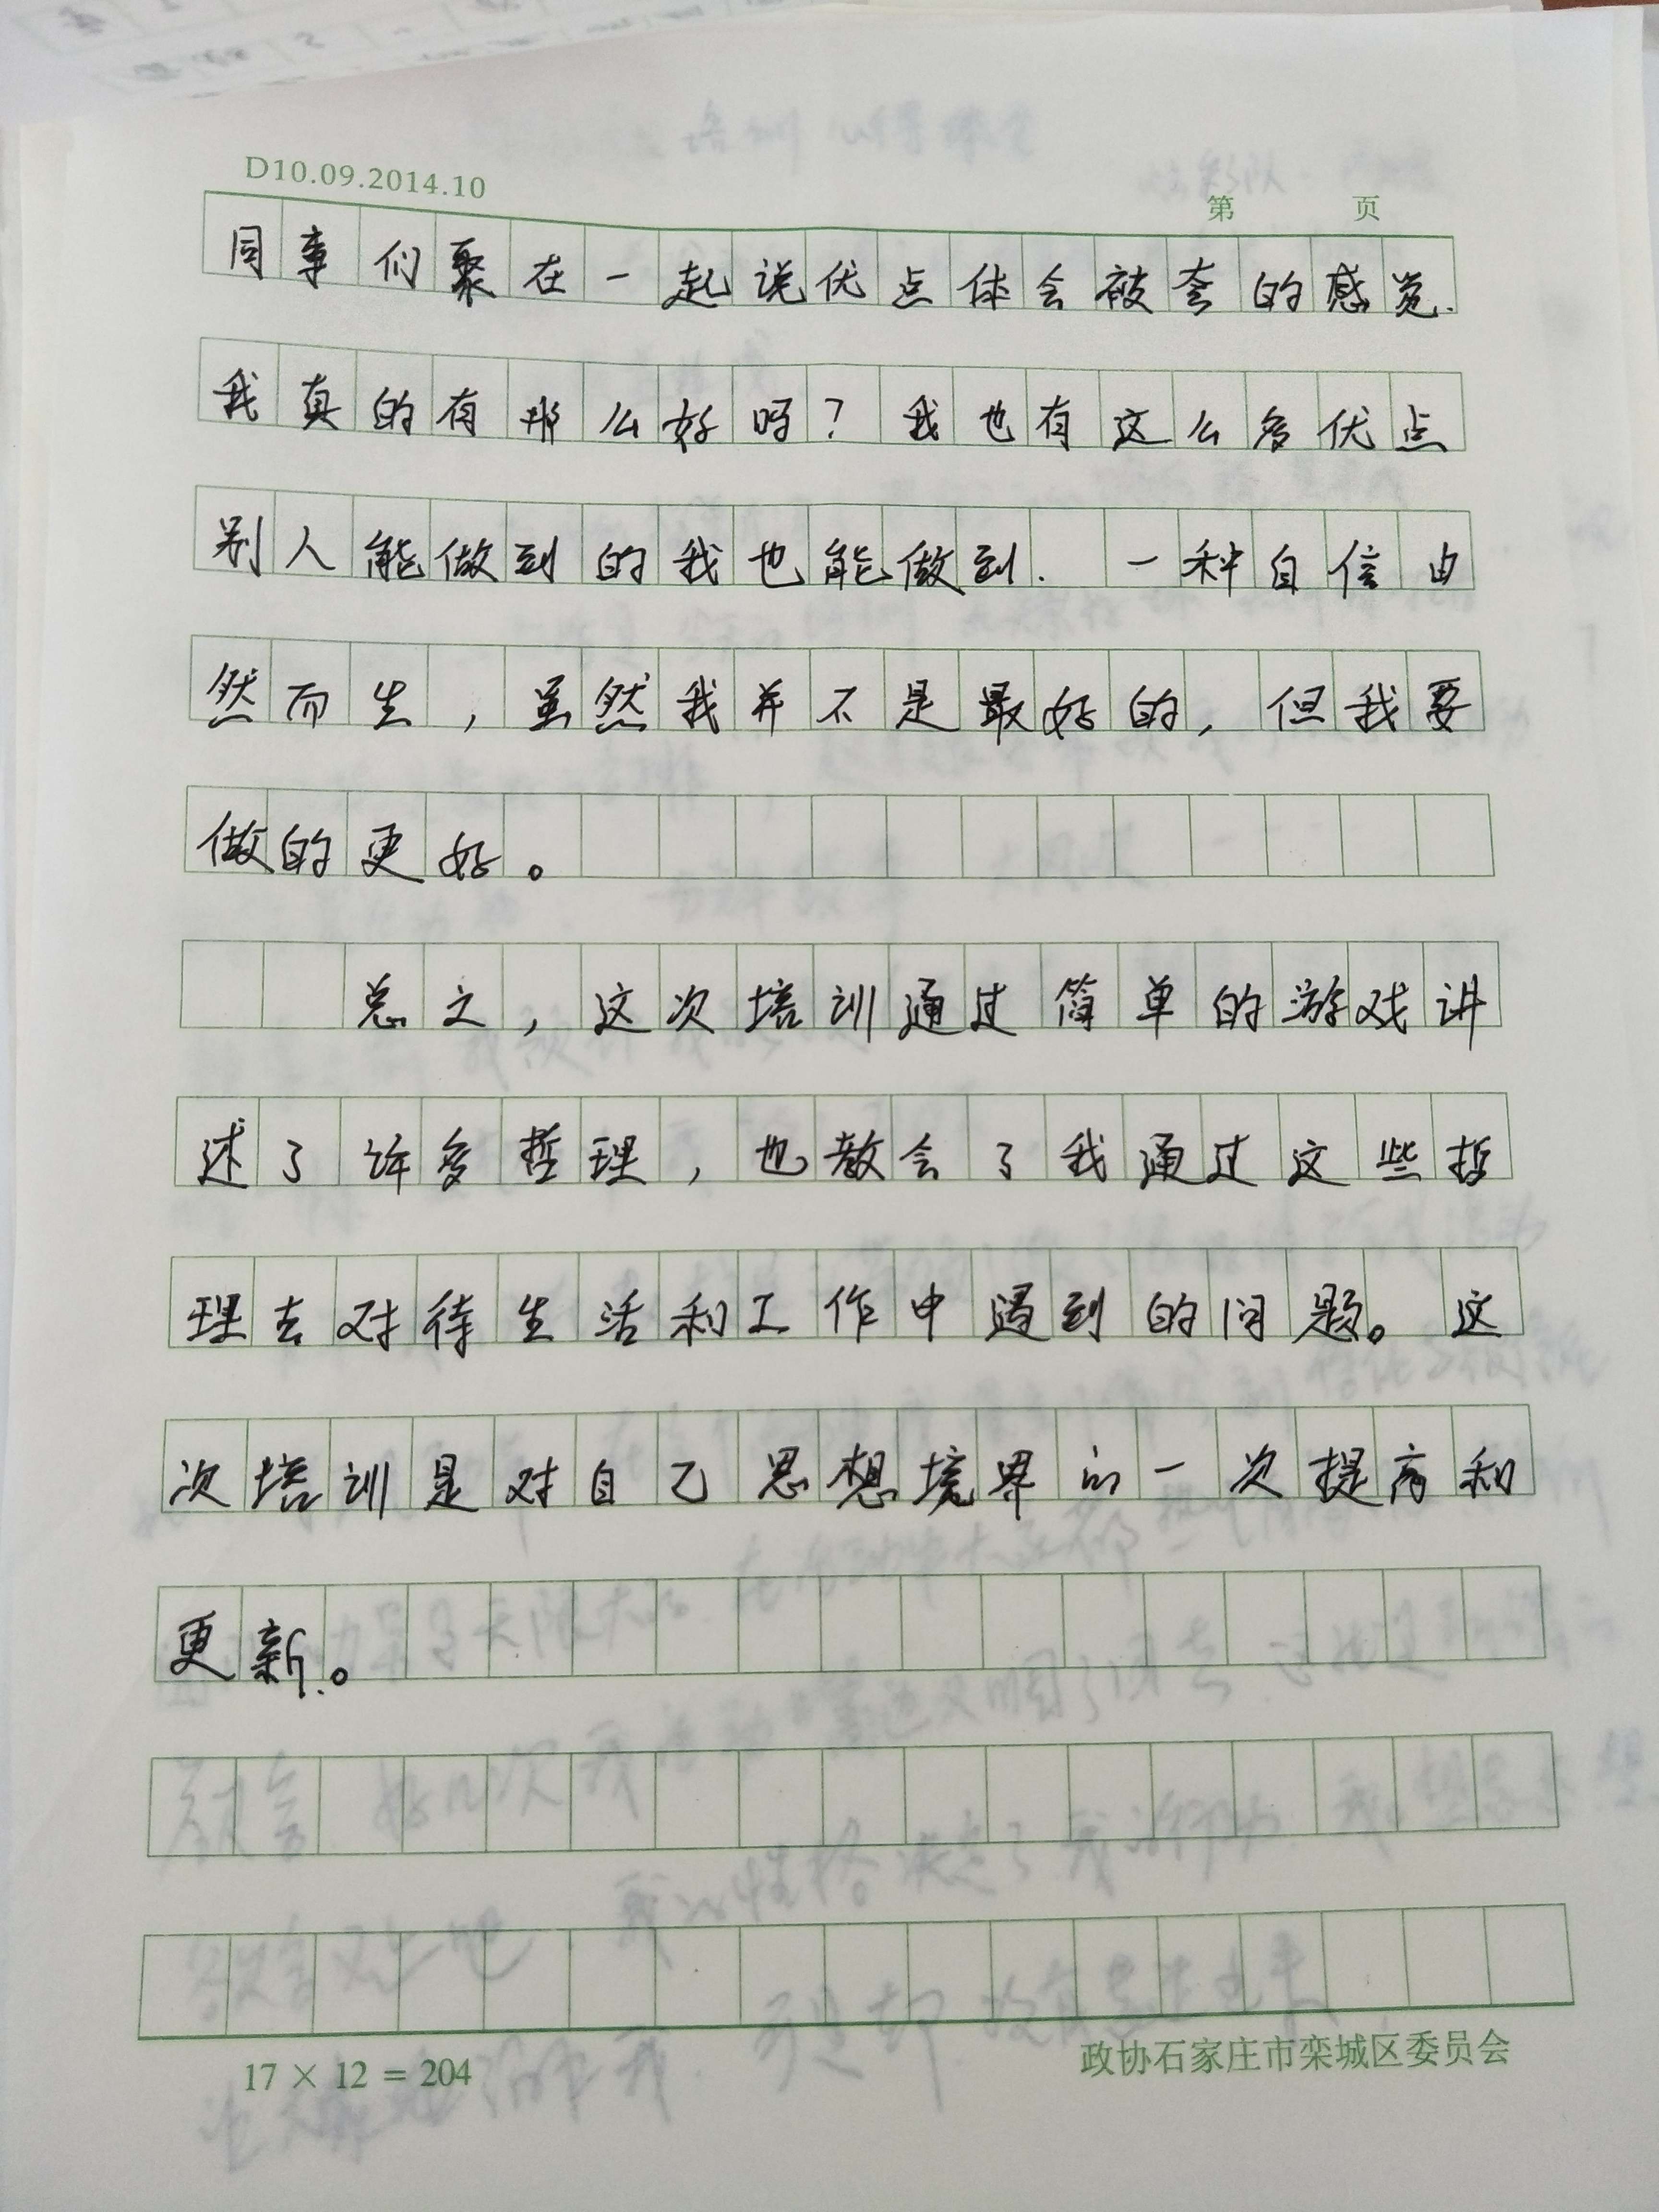 D10.09.2014.10
第 页
同事们聚在一起说优点体会被夸的感觉.
我真的有那么好吗?我也有这么多优点
别人能做到的我也能做到. 一种自信由
然而生,虽然我并不是最好的,但我要
做的更好。
总之,这次培训通过简单的游戏讲
述了许多哲理,也教会了我通过这些哲
理去对待生活和工作中遇到的问题。这
次培训是对自己思想境界的一次提高和
更新。
17 × 12 = 204
政协石家庄市栾城区委员会